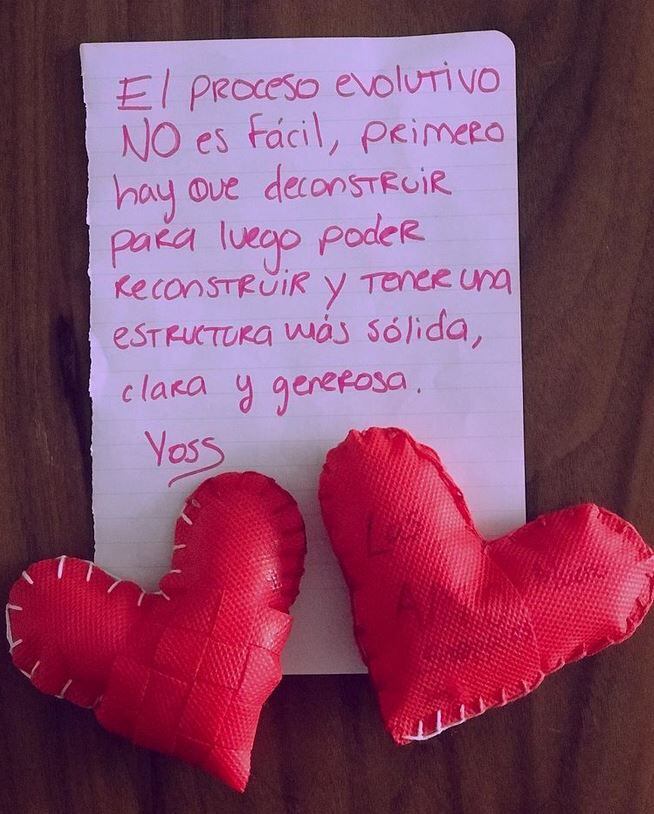 El proceso evolutivo
NO es fácil, primero
hay que deconstruir
para luego poder
reconstruir y tener una
estructura más sólida,
clara y generosa.
Yoss